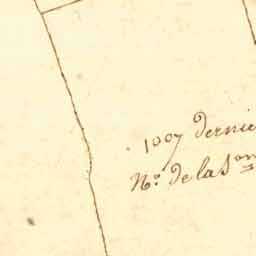 1007 dernie
N.º de la S.on